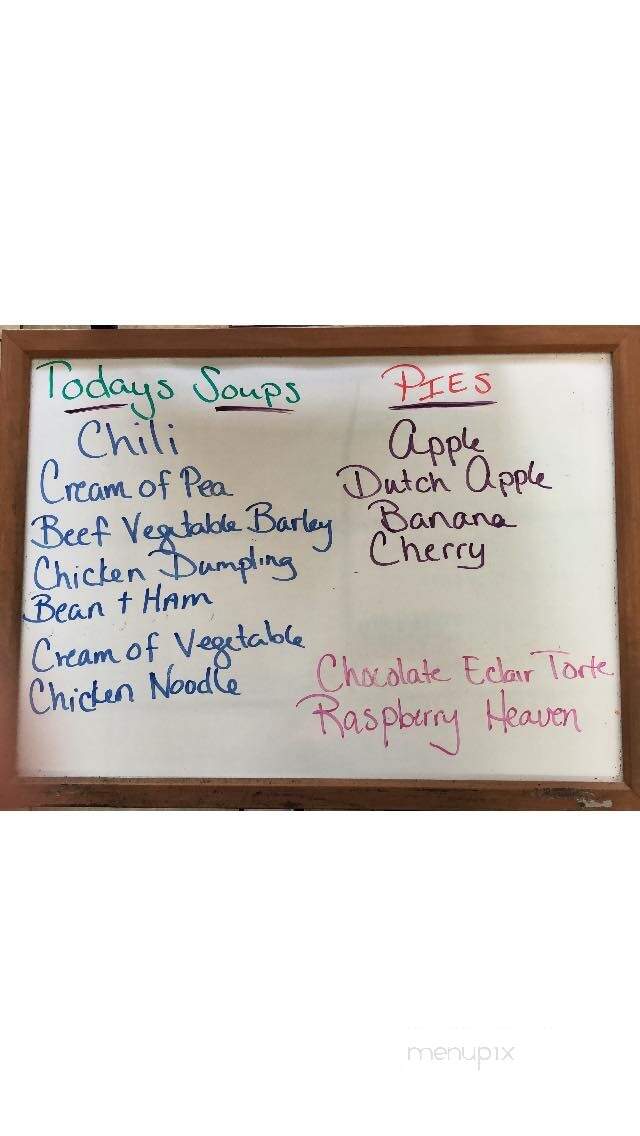 Todays Soups
Chili
Cream of Pea
Beef Vegetable Barley
Chicken Dumpling
Bean + HAM
Cream of Vegetable
Chicken Noodle
PIES
Apple
Dutch Apple
Banana
Cherry
Chocolate Eclair Torte
Raspberry Heaven
menupix